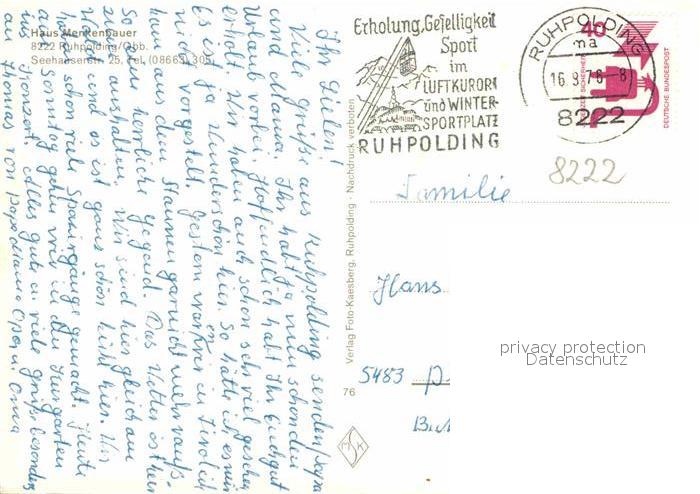 Haus Menkenbauer
8222 Ruhpolding/Obb.
Seehauserstr. 25, Tel. (08663) 305
Ihr Lieben!
Viele Grüße aus Ruhpolding senden
und Mama. Ihr habt ja nun schon den
Urlaub vorbei. Hoffentlich habt Ihr Euch gut
erholt. Wir haben auch schon sehr viel gesehen
es ist ja wunderschön hier. So hätte ich es mir
nicht vorgestellt. Gestern waren wir in Tirol ich
kam aus dem Staunen gar nicht mehr raus.
So eine herrliche Gegend. Das Wetter ist hier
zum aushalten. Wir sind hier gleich am
Wald und es ist ganz schön leicht hier. Wir
haben schon viele Spaziergänge gemacht. Heute
am Sonntag gehn wir in den Kurgarten
ins Konzert. Alles gute u. viele Grüße besonders
an Thomas von Opa u. Oma
Verlag Foto-Kaesberg, Ruhpolding · Nachdruck verboten
76
MSK
Erholung, Geselligkeit
Sport
im
LUFTKURORT
und WINTER-
SPORTPLATZ
RUHPOLDING
RUHPOLDING
ma
16.9.76-8
8222
40
DEUTSCHE BUNDESPOST
8222
Familie
Hans
5483
privacy protection
Datenschutz